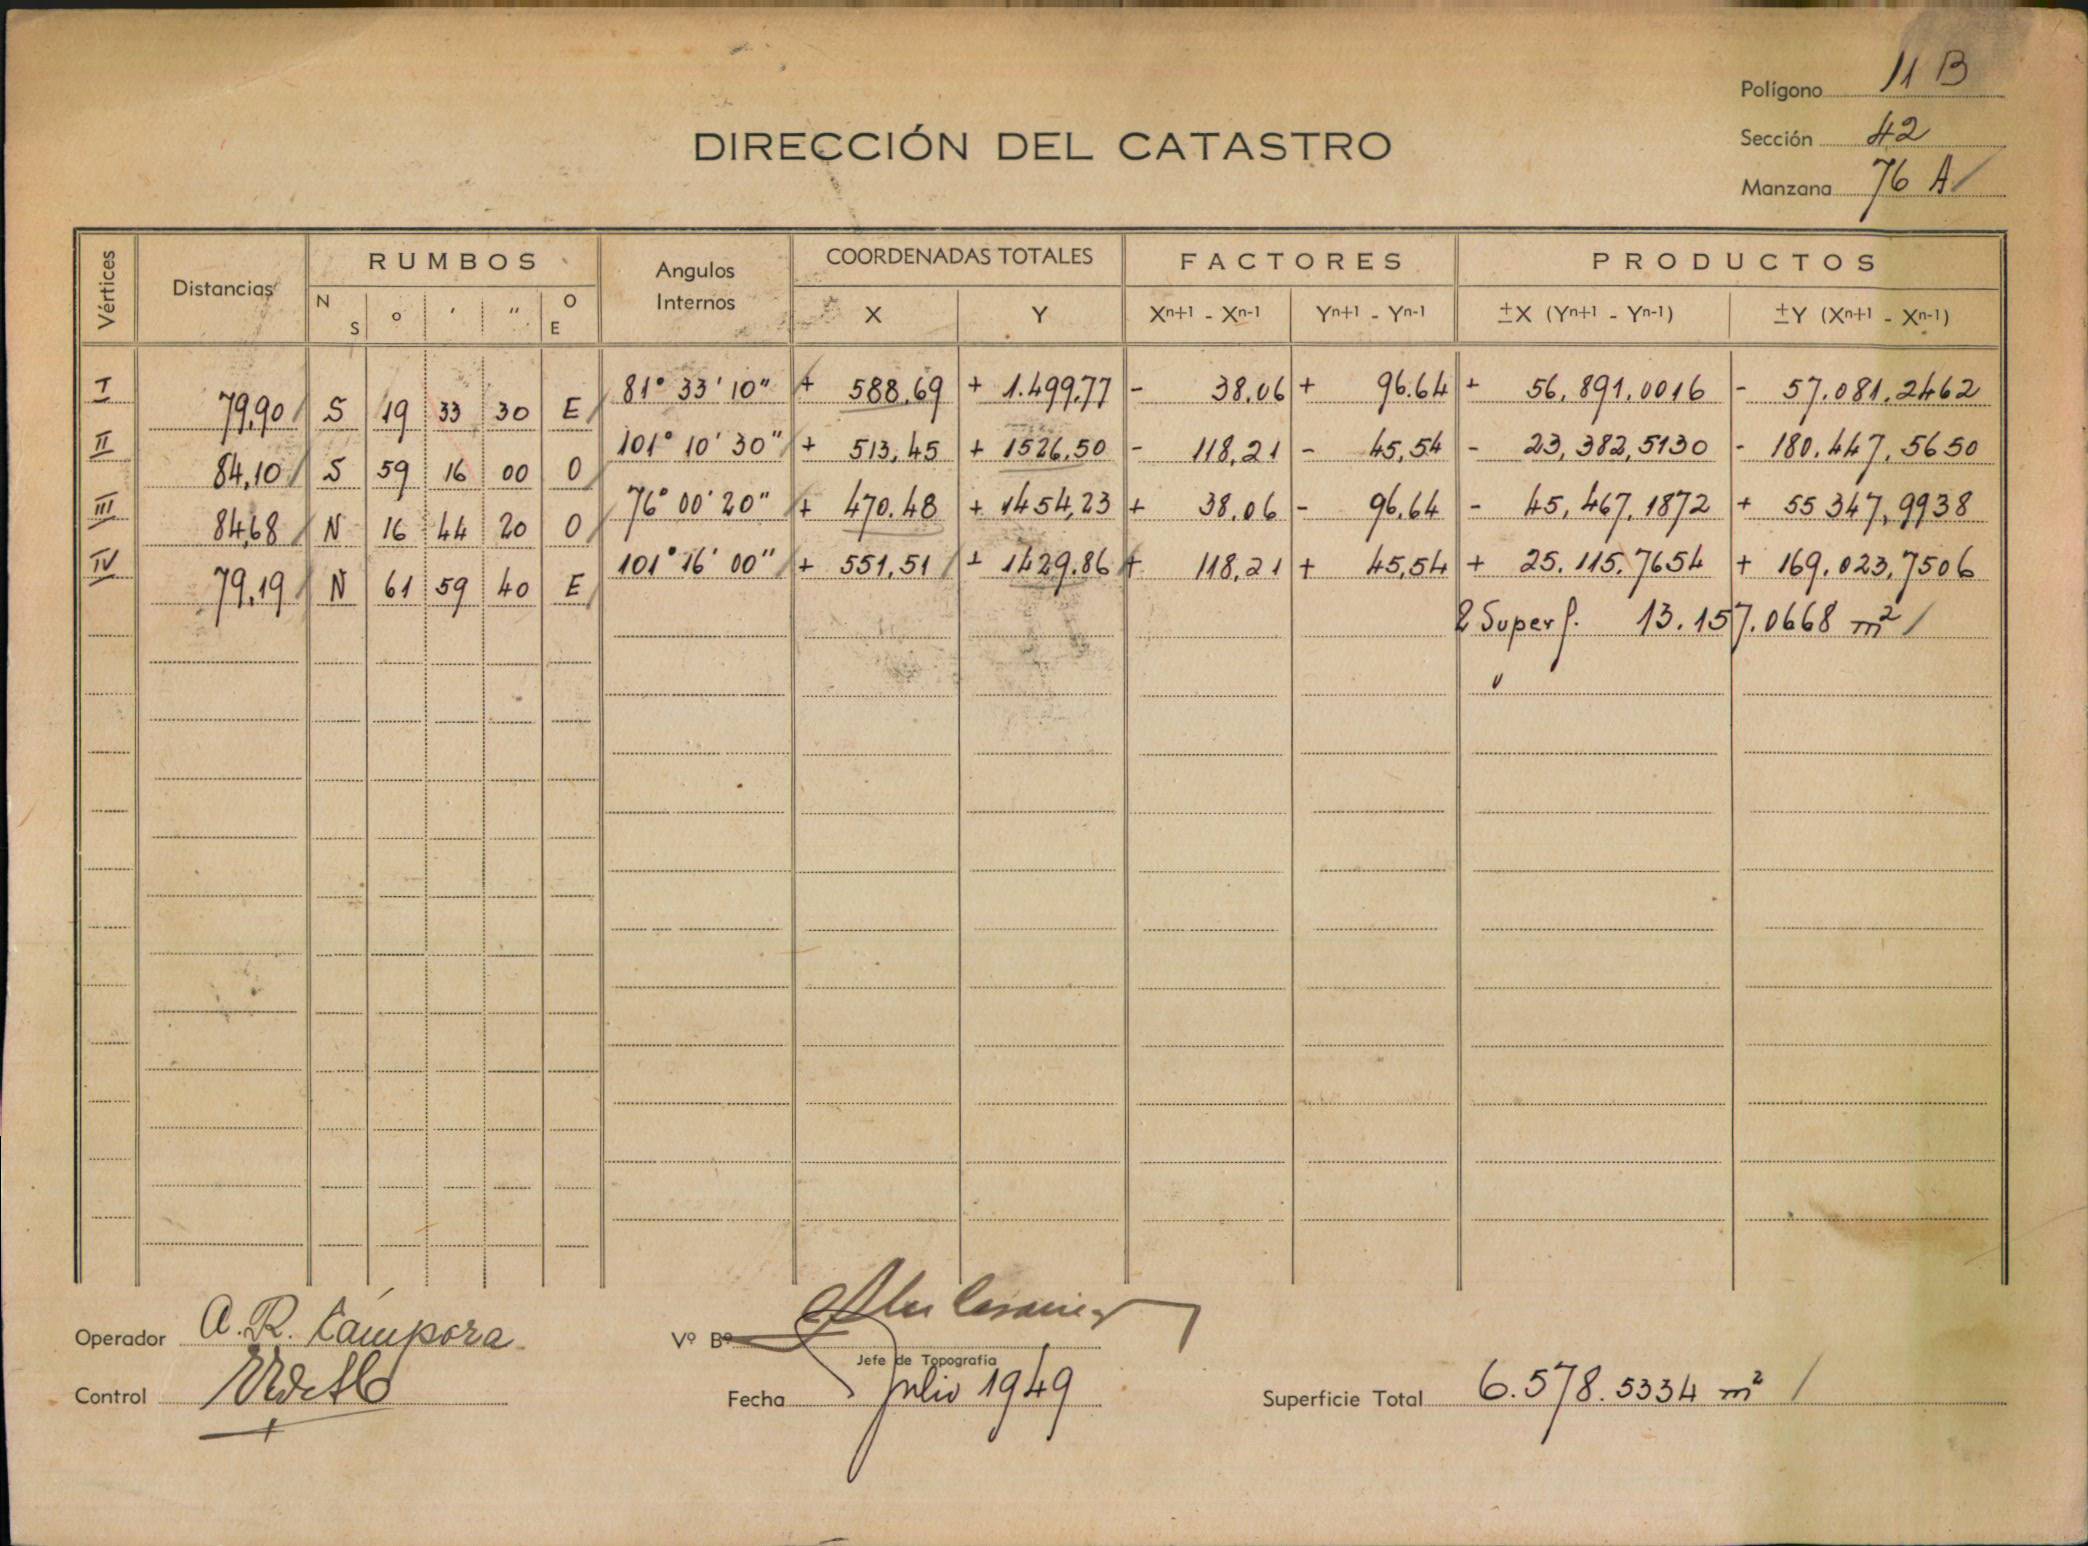 Polígono 11 B
DIRECCIÓN DEL CATASTRO
Sección 42
Manzana 76 A
Vértices
Distancias
RUMBOS
N S
o
'
"
O E
Angulos Internos
COORDENADAS TOTALES
X
Y
FACTORES
Xn+1 - Xn-1
Yn+1 - Yn-1
PRODUCTOS
±X (Yn+1 - Yn-1)
±Y (Xn+1 - Xn-1)
I 81° 33' 10" + 588.69 + 1.499,77 - 38.06 + 96.64 + 56,891,0016 - 57.081.2462
79,90 S 19 33 30 E
II 101° 10' 30" + 513,45 + 1526,50 - 118,21 - 45,54 - 23,382,5130 - 180.447,5650
84,10 S 59 16 00 O
III 76° 00' 20" + 470.48 + 1454,23 + 38,06 - 96,64 - 45,467,1872 + 55347,9938
84,68 N 16 44 20 O
IV 101° 16' 00" + 551,51 + 1429.86 + 118,21 + 45,54 + 25.115.7654 + 169.023,7506
79,19 N 61 59 40 E
2 Superf. 13.157.0668 m²
"
Operador A. R. Cámpora
Vº Bº
Jefe de Topografía
Control
Fecha Julio 1949
Superficie Total 6.578.5334 m²